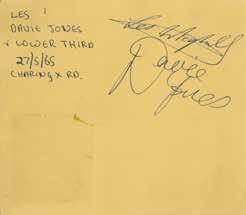 LES !
DAVIE JONES
+ LOWER THIRD
27/5/65
CHARING X RD.
Les
Davie
Jones